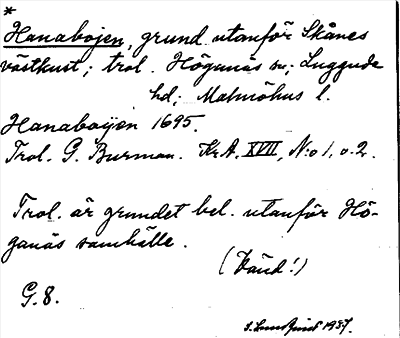 *
Hanabojen, grund utanför Skånes
västkust; trol. Höganäs sn; Luggude
hd; Malmöhus l.
Hanaboijen 1695.
Trol. G. Burman. Kr.A. XVII, N:o 1, o. 2.
Trol. är grundet bel. utanför Hö-
ganäs samhälle.
(Vänd!)
G.8.
1937.